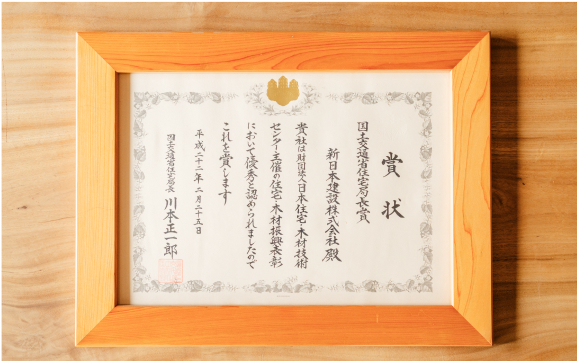 賞状
国土交通省住宅局長賞
新日本建設株式会社殿
貴社は財団法人日本住宅・木材技術
センター主催の住宅・木材振興表彰
において優秀と認められましたので
これを賞します
平成二十二年二月二十五日
国土交通省住宅局長 川本正一郎